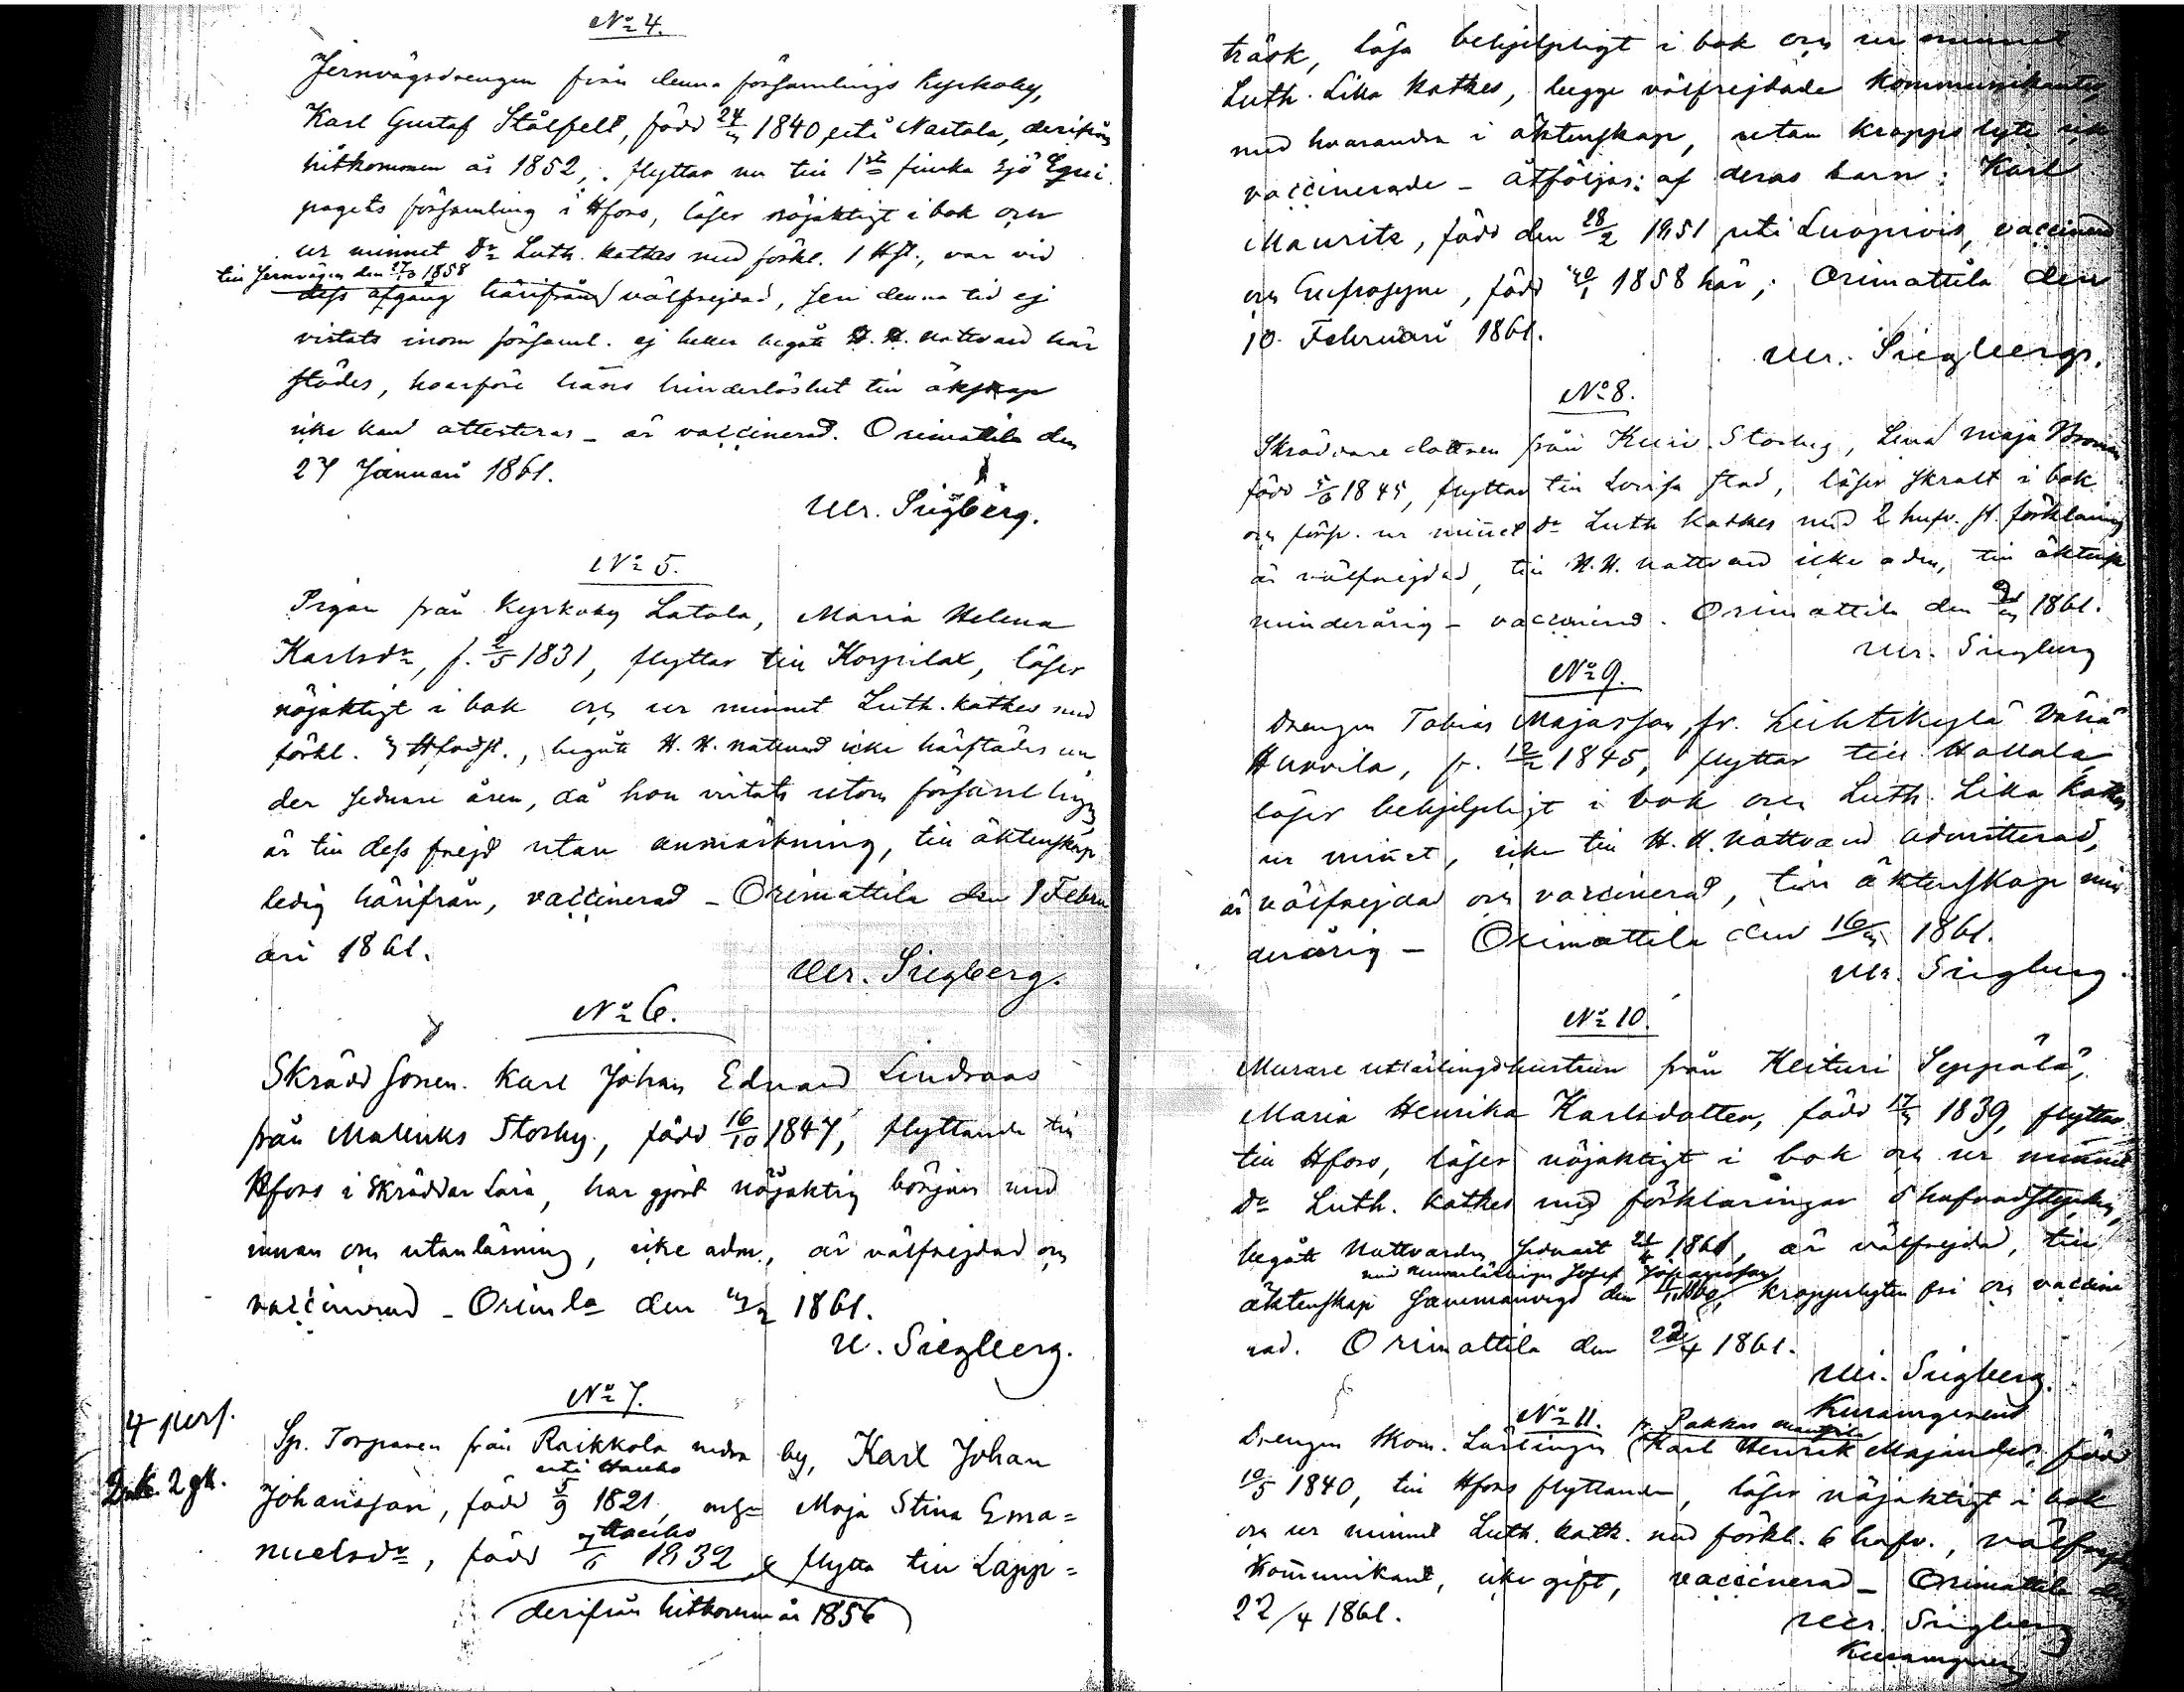 No 4.
Jernvägsdrengen från denna församlings Kyrkoby,
Karl Gustaf Stålfelt, född 24/ 1840 uti Nastola, derifrån
hitkommen år 1852, flyttar nu till 1sta finska Sjö Equi
pagets församling i Hfors, läser nöjaktigt i bok och
ur minnet Dr Luth. kathes med förkl. 1 Hst., var vid
till Jernvägen den 1858
dess afgång härifrån välfrejdad, sen denna tid ej
vistats inom församl. ej heller begått H. H. Nattvard här
städes, hvarföre hans hinderlöshet till äkskap
icke kan attesteras - är vaccinerad. Orimattila den
27 Januari 1861.
Siegberg.
No 5.
Pigan från Kyrkoby Latola, Maria Helena
Karlsdr, f. 2/5 1831, flyttar till Korpilax, läser
nöjaktigt i bok och ur minnet Luth. kathes med
förkl. Hfodst., begått H. H. nattvard icke härstädes un
der sednare åren, då hon vistats utom församlingen
är till dess frejd utan anmärkning, till äktenskap
ledig härifrån, vaccinerad - Orimattila den 1 Febru
ari 1861.
Siegberg.
No 6.
Skrädd Sonen Karl Johan Eduard Lindroos
från Mallusks Storby, född 16/10 1847, flyttande till
Hfors i Skräddar Lära, har gjort nöjaktig början med
innan och utanläsning, icke adm., är välfrejdad och
vaccinerad - Orimla den 1861.
Siegberg.
No 7.
4 pers.
Sp. Torparen från Raikkola nedra by, Karl Johan
uti Hauho
2 gk.
Johansson, född 5/9 1821, och Maja Stina Ema=
Hauho
nuelsdr, född 1832 flytta till Lapp=
derifrån hitkomne år 1856
träsk, läsa behjelpligt i bok och ur minnet
Luth. Lilla Kathes, begge välfrejdade Kommunikanter,
med hvarandra i äktenskap, utan kroppslyte och
vaccinerade - åtföljas: af deras barn: Karl
Mauritz, född den 28/2 1851 uti Luopiois, vaccinerad
och Eufrosyne, född 1858 här; Orimattila den
10 Februari 1861.
Siegberg.
No 8.
Skräddare dottren från Storby, Lena Maja
född 5/6 1845, flyttar till Lovisa stad, läser skralt i bok
och ur minnet Dr Luth kathes med 2 hufv. st. förklaring
är välfrejdad, till H. H. nattvard icke adm, till äktensk
minderårig - vaccinerad. Orimattila den 1861.
Siegberg
No 9.
Drengen Tobias Majasson, fr.
f. 12/2 1845, flyttar till Hollola,
läser behjelpligt i bok och Luth Lilla Kathes
ur minnet, icke till H. H. Nattvard admitterad,
är välfrejdad och vaccinerad, till äktenskap min
derårig - Orimattila den 16/ 1861.
Siegberg.
No 10.
Murare utlärlingshustrun från Keituri Seppälä,
Maria Henrika Karlsdotter, född 17/ 1839, flyttar
till Hfors, läser nöjaktigt i bok och ur minnet
Dr Luth. kathes med förklaringar 5 hufvudstycken,
begått Nattvarden sednast 1861, är välfrejdad, till
med Josef
äktenskap sammanvigd den 1860, kroppslyten fri och vaccine
rad. Orimattila den 22/4 1861.
Siegberg.
No 11.
fr. Pakkas
Drengen Skom. Lärlingen Karl Henrik Majander, född
10/5 1840, till Hfors flyttande, läser nöjaktigt i bok
och ur minnet Luth. kath. med förkl. 6 hufv., välfrejd
Kommunikant, icke gift, vaccinerad - Orimattila den
22/4 1861.
Siegberg